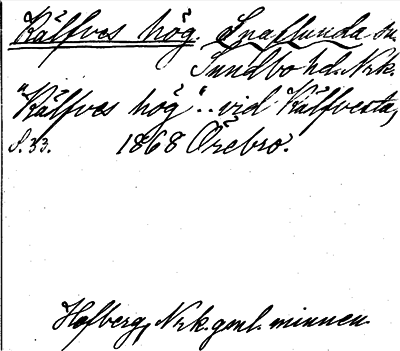 Kälfves hög. Snaflunda sn.
Sundbo hd. Nrk.
"Kälfves hög".. vid Kälfvesta,
S. 33. 1868 Örebro.
Hofberg, Nrk. gml. minnen